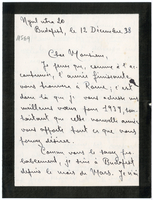 Nyul utca 20
Budapest, le 12 Décembre 38
Cher Monsieur,
Je pense que, comme à l'ac-
coutumée, l'année finissante
vous trouvera à Rome; c'est
donc là que je vous adresse mes
meilleurs vœux pour 1939, en
souhaitant que cette nouvelle année
vous apporte tout ce que vous
pouvez désirer.
Comme vous le savez pro-
bablement, je suis à Budapest
depuis le mois de Mars. Je n'ai